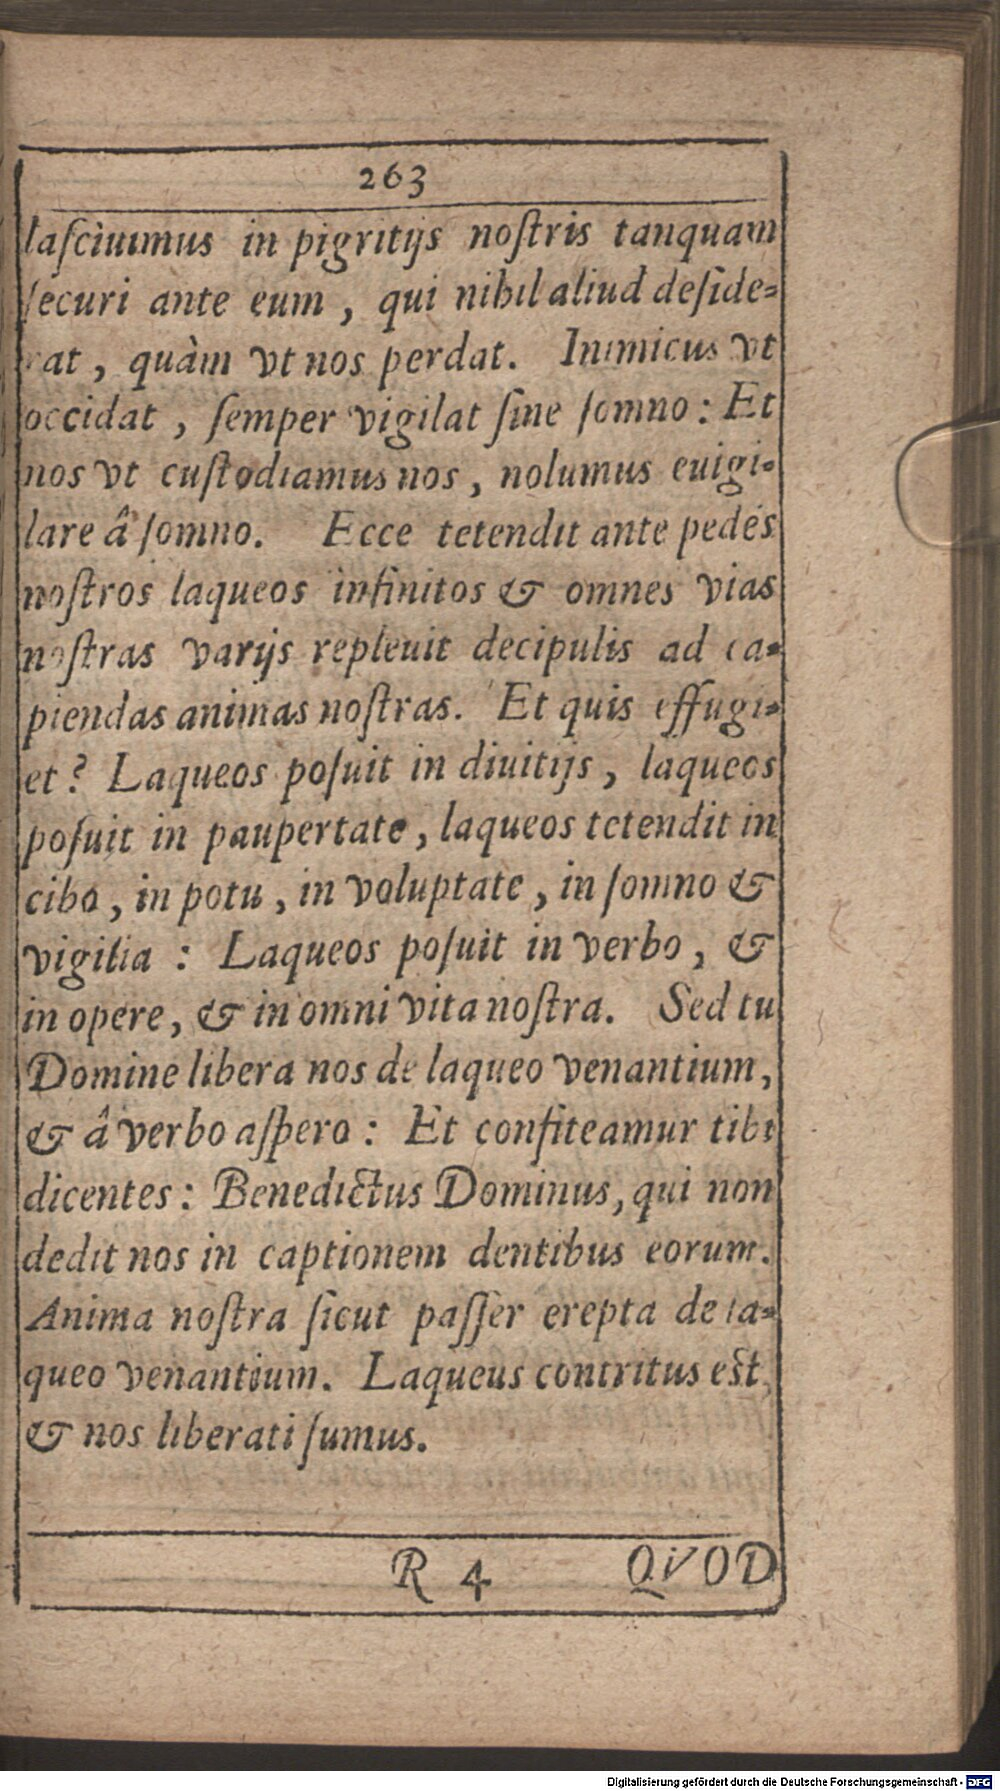 263
laſciuimus in pigritijs noſtris tanquam
ſecuri ante eum, qui nihil aliud deſide-
rat, quàm vt nos perdat. Inimicus vt
occidat, ſemper vigilat ſine ſomno: Et
nos vt cuſtodiamus nos, nolumus euigi-
lare â ſomno. Ecce tetendit ante pedes
noſtros laqueos infinitos & omnes vias
noſtras varijs repleuit decipulis ad ca-
piendas animas noſtras. Et quis effugi-
et? Laqueos poſuit in diuitijs, laqueos
poſuit in paupertate, laqueos tetendit in
cibo, in potu, in voluptate, in ſomno &
vigilia: Laqueos poſuit in verbo, &
in opere, & in omni vita noſtra. Sed tu
Domine libera nos de laqueo venantium,
& â verbo aſpero: Et confiteamur tibi
dicentes: Benedictus Dominus, qui non
dedit nos in captionem dentibus eorum.
Anima noſtra ſicut paſſer erepta de la-
queo venantium. Laqueus contritus eſt,
& nos liberati ſumus.
R 4 QVOD
Digitalisierung gefördert durch die Deutsche Forschungsgemeinschaft - DFG